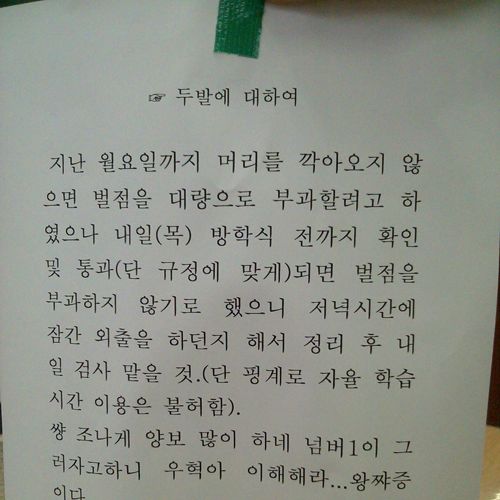 ☞ 두발에 대하여
지난 월요일까지 머리를 깍아오지 않
으면 벌점을 대량으로 부과할려고 하
였으나 내일(목) 방학식 전까지 확인
및 통과(단 규정에 맞게)되면 벌점을
부과하지 않기로 했으니 저녁시간에
잠간 외출을 하던지 해서 정리 후 내
일 검사 맡을 것.(단 핑계로 자율 학습
시간 이용은 불허함).
썅 조나게 양보 많이 하네 넘버1이 그
러자고하니 우혁아 이해해라...왕쨔증
이다